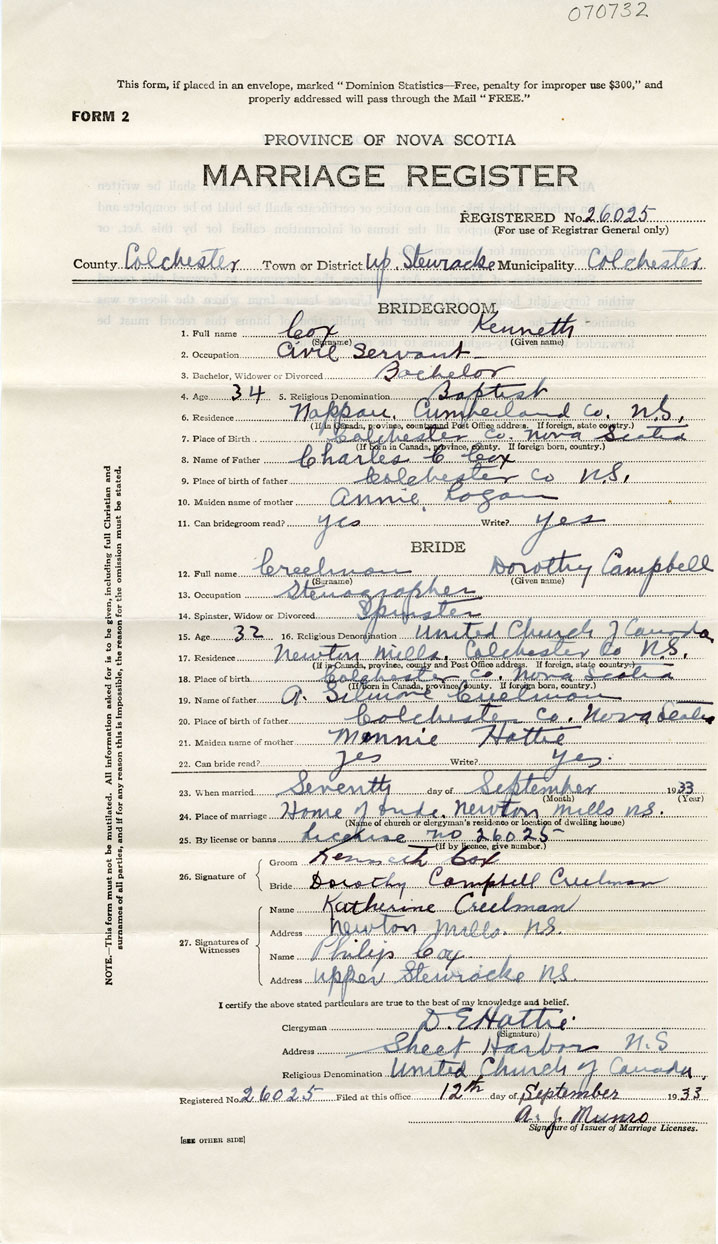 070732
This form, if placed in an envelope, marked "Dominion Statistics—Free, penalty for improper use $300," and
properly addressed will pass through the Mail "FREE."
FORM 2
PROVINCE OF NOVA SCOTIA
MARRIAGE REGISTER
REGISTERED No. 26025
(For use of Registrar General only)
County Colchester Town or District Up. Stewiacke Municipality Colchester
BRIDEGROOM
1. Full name Cox Kenneth
(Surname) (Given name)
2. Occupation Civil Servant
3. Bachelor, Widower or Divorced Bachelor
4. Age 34 5. Religious Denomination Baptist
6. Residence Nappan, Cumberland Co. N.S.
(If in Canada, province, county and Post Office address. If foreign, state country.)
7. Place of Birth Colchester Co. Nova Scotia
(If born in Canada, province, county. If foreign born, country.)
8. Name of Father Charles C Cox
9. Place of birth of father Colchester Co N.S.
10. Maiden name of mother Annie Logan
11. Can bridegroom read? yes Write? yes
BRIDE
12. Full name Creelman Dorothy Campbell
(Surname) (Given name)
13. Occupation Stenographer
14. Spinster, Widow or Divorced Spinster
15. Age 32 16. Religious Denomination United Church of Canada
17. Residence Newton Mills, Colchester Co N.S.
(If in Canada, province, county and Post Office address. If foreign, state country.)
18. Place of birth Colchester Co. Nova Scotia
(If born in Canada, province, county. If foreign born, country.)
19. Name of father A. Creelman
20. Place of birth of father Colchester Co. Nova Scotia
21. Maiden name of mother Minnie Hattie
22. Can bride read? yes Write? yes.
23. When married Seventh day of September 1933
(Month) (Year)
24. Place of marriage Home of bride, Newton Mills N.S.
(Name of church or clergyman's residence or location of dwelling house)
25. By license or banns License no 26025
(If by licence, give number.)
26. Signature of
Groom Kenneth Cox
Bride Dorothy Campbell Creelman
27. Signatures of Witnesses
Name Katherine Creelman
Address Newton Mills. N.S.
Name Philip Cox
Address Upper Stewiacke N.S.
I certify the above stated particulars are true to the best of my knowledge and belief.
Clergyman D. E Hattie
(Signature)
Address Sheet Harbor N.S
Religious Denomination United Church of Canada.
Registered No. 26025 Filed at this office 12th day of September 1933
A. J. Munro
Signature of Issuer of Marriage Licenses.
[SEE OTHER SIDE]
NOTE.—This form must not be mutilated. All information asked for is to be given, including full Christian and
surnames of all parties, and if for any reason this is impossible, the reason for the omission must be stated.